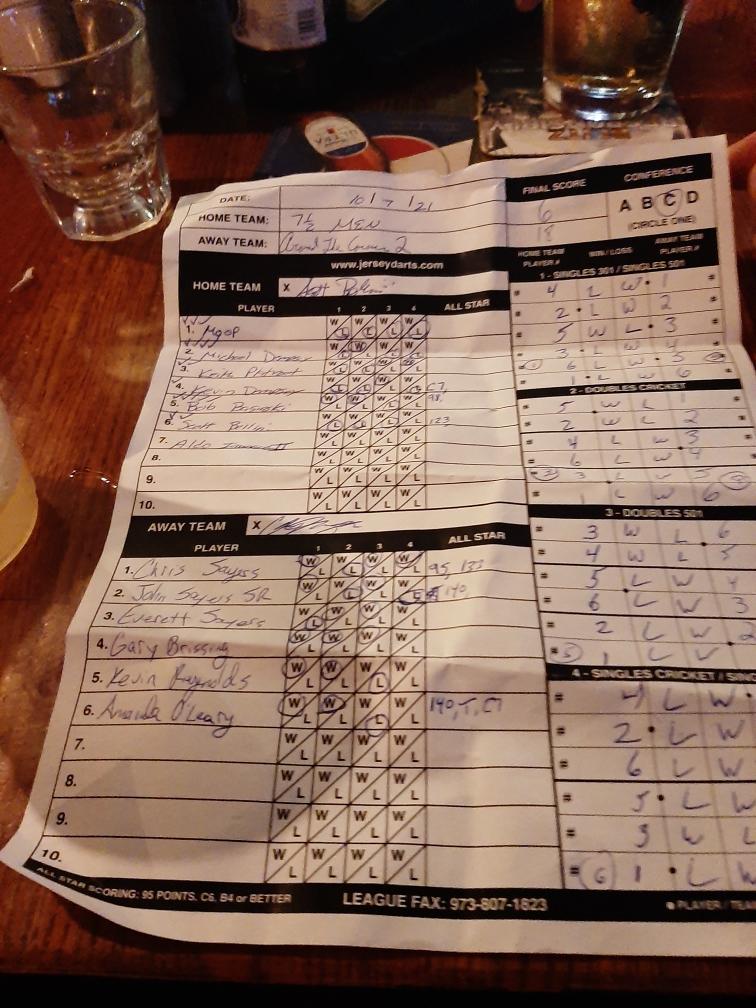 DATE: 10/7/21
HOME TEAM: 7½ MEN
AWAY TEAM: Around The Corner 2
FINAL SCORE
6
18
CONFERENCE
A B C D
(CIRCLE ONE)
www.jerseydarts.com
HOME TEAM X Scott
PLAYER 1 2 3 4 ALL STAR
1. Mgop W L W L W L W L
2. Michael W L W L W L W L
3. Keith W L W L W L W L
4. Kevin W L W L W L W L C7,
5. Bob W L W L W L W L 98,
6. Scott W L W L W L W L 123
7. Aldo W L W L W L W L
8. W L W L W L W L
9. W L W L W L W L
10. W L W L W L W L
AWAY TEAM X
PLAYER 1 2 3 4 ALL STAR
1. Chris Sayers W L W L W L W L 95, 133
2. John Sayers SR W L W L W L W L 140,
3. Everett Sayers W L W L W L W L
4. Gary Brissing W L W L W L W L
5. Kevin Reynolds W L W L W L W L
6. Amanda O'Leary W L W L W L W L 140, T, C7
7. W L W L W L W L
8. W L W L W L W L
9. W L W L W L W L
10. W L W L W L W L
HOME TEAM PLAYER # WIN / LOSS AWAY TEAM PLAYER #
1 - SINGLES 301 / SINGLES 501
= 4 L W 1 =
= 2 L W 2 =
= 5 W L 3 =
= 3 L W 4 =
= 1 6 L W 5
= 1 L W 6 =
2 - DOUBLES CRICKET
= 5 W L 1
= 2 W L 2
= 4 L W 3
= 6 L W 4
= 3 L W 5
= 1 L W 6
3 - DOUBLES 501
= 3 W L 6
= 4 W L 5
= 5 L W 4
= 6 L W 3
= 2 L W 2
= 5 1 L
4 - SINGLES CRICKET / SING
= 4 L W
= 2 L W
= 6 L W
= 5 L W
= 3 W L
= 6 1 L W
ALL STAR SCORING: 95 POINTS, C6, B4 or BETTER
LEAGUE FAX: 973-807-1823
PLAYER / TEA